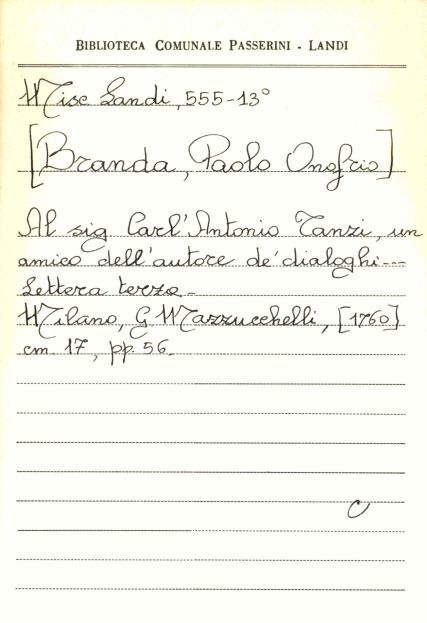 BIBLIOTECA COMUNALE PASSERINI - LANDI
Misc Landi, 555-13°
[Branda, Paolo Onofrio]
Al sig Carl'Antonio Tanzi, un
amico dell'autore de' dialoghi---
Lettera terza -
Milano, G Mazzucchelli, [1760]
cm. 17, pp. 56.
C